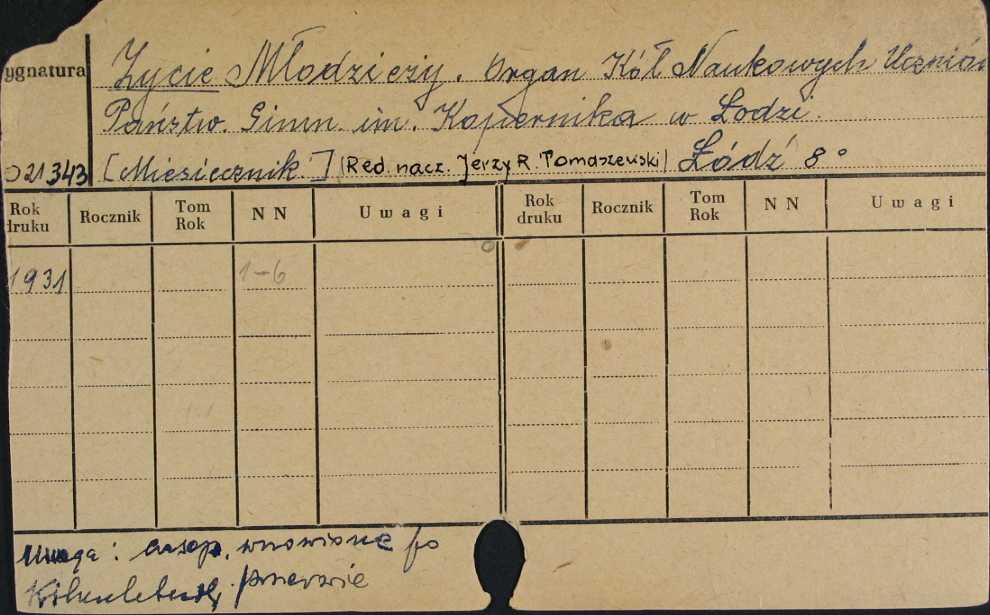 ygnatura
Życie Młodzieży. Organ Kół Naukowych Uczniów
Państw. Gimn. im. Kopernika w Łodzi.
021343 [Miesięcznik] (Red. nacz. Jerzy R. Tomaszewski) Łódź 8°
Rok druku Rocznik Tom Rok NN Uwagi Rok druku Rocznik Tom Rok NN Uwagi
1931 1-6
Uwaga: czasop. wznowione po
przerwie